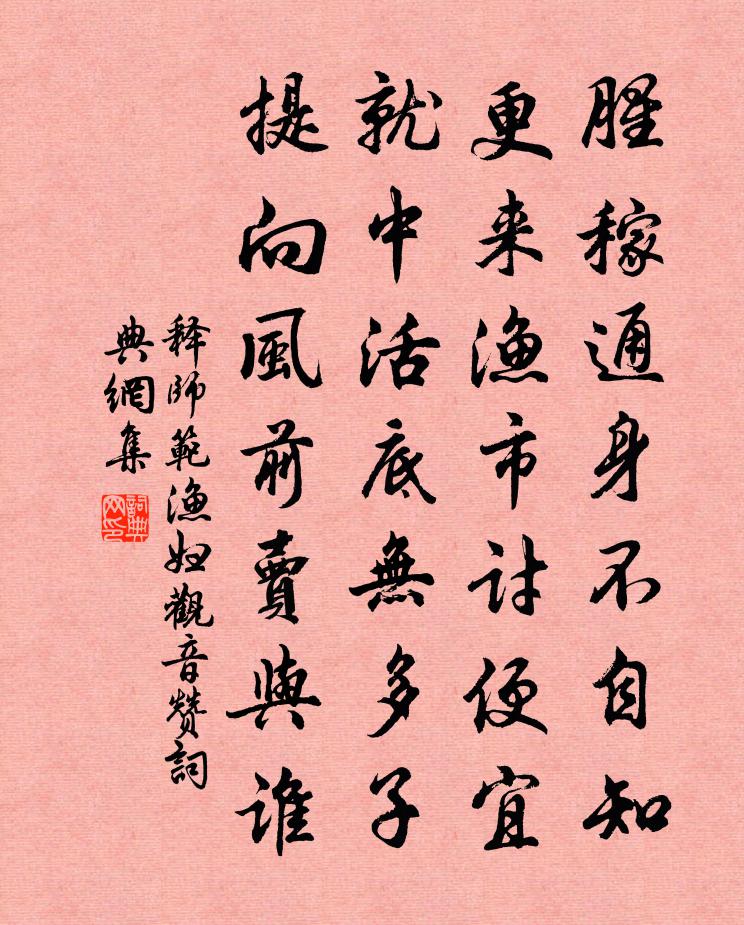 腥穢通身不自知
更来漁市討便宜
就中活底無多子
提向風前賣與誰
釋師範漁婦觀音贊詞
典網集
詞典網印